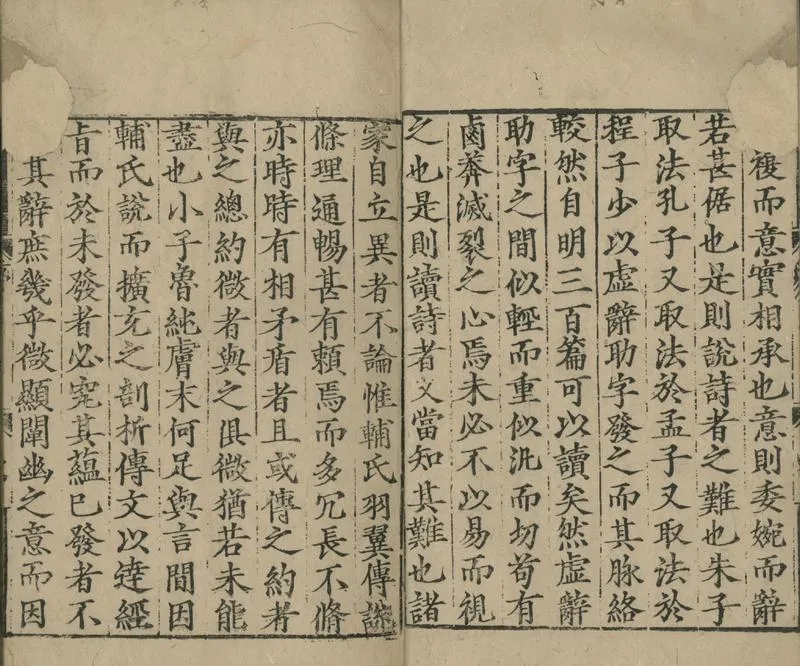 複而意實相承也意則委婉而辭
若甚倨也是則說詩者之難也朱子
取法孔子又取法於孟子又取法於
程子少以虛辭助字發之而其脉絡
較然自明三百篇可以讀矣然虛辭
助字之間似輕而重似汎而切苟有
鹵莽滅裂之心焉未必不以易而視
之也是則讀詩者又當知其難也諸
家自立異者不論惟輔氏羽翼傳說
條理通暢甚有頼焉而多冗長不脩
亦時時有相矛盾者且或傳之約者
與之總約微者與之俱微猶若未能
盡也小子魯純膚末何足與言間因
輔氏說而擴充之剖析傳文以達經
旨而於未發者必究其蘊已發者不
其辭庶幾乎微顯闡幽之意而因